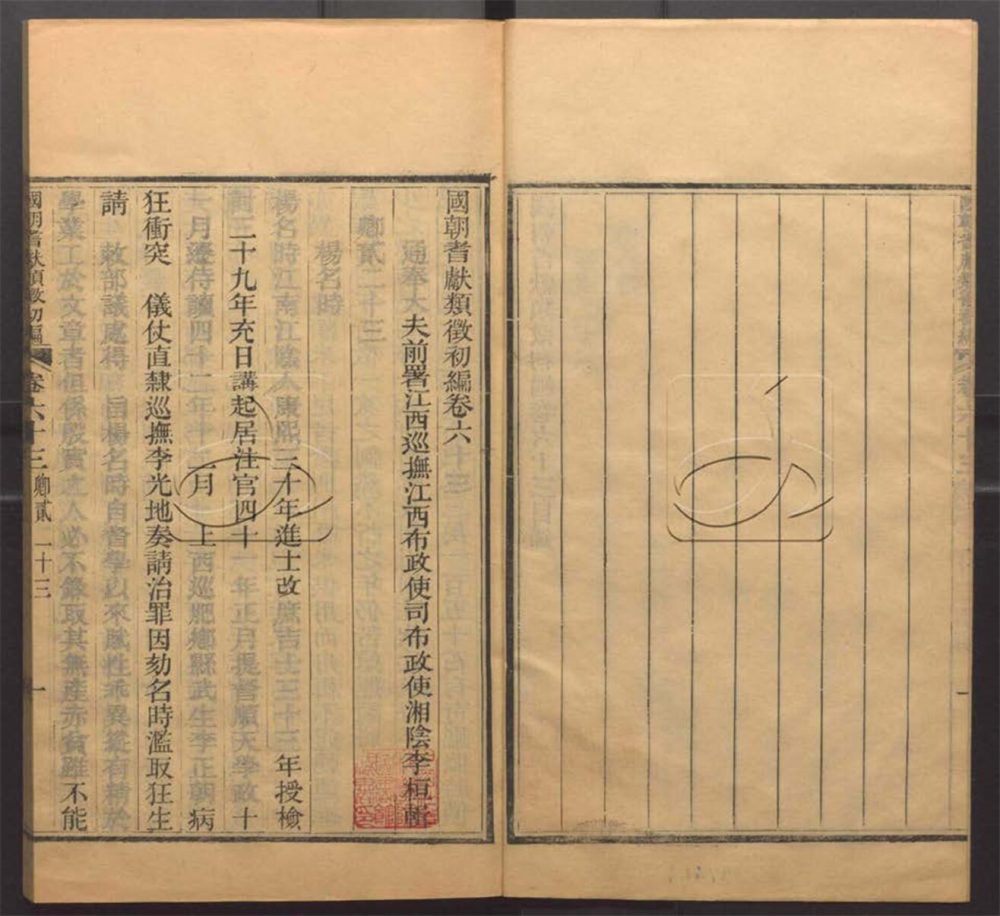 國朝耆獻類徵初編卷六十三
通奉大夫前署江西巡撫江西布政使司布政使湘陰李桓輯
卿貳二十三
楊名時
楊名時江南江陰人康熙三十年進士改庶吉士三十三年授檢
討三十九年充日講起居注官四十一年正月提督順天學政十
一月遷侍讀四十二年十二月上西巡肥鄉縣武生李正朝病
狂衝突　儀仗直隸巡撫李光地奏請治罪因劾名時濫取狂生
請　敕部議處得　旨楊名時自督學以來賦性乖異縱有精於
學業工於文章者但係殷實之人必不錄取其無產赤貧雖不能
國朝耆獻類徵初編　卷六十三　卿貳二十三　一